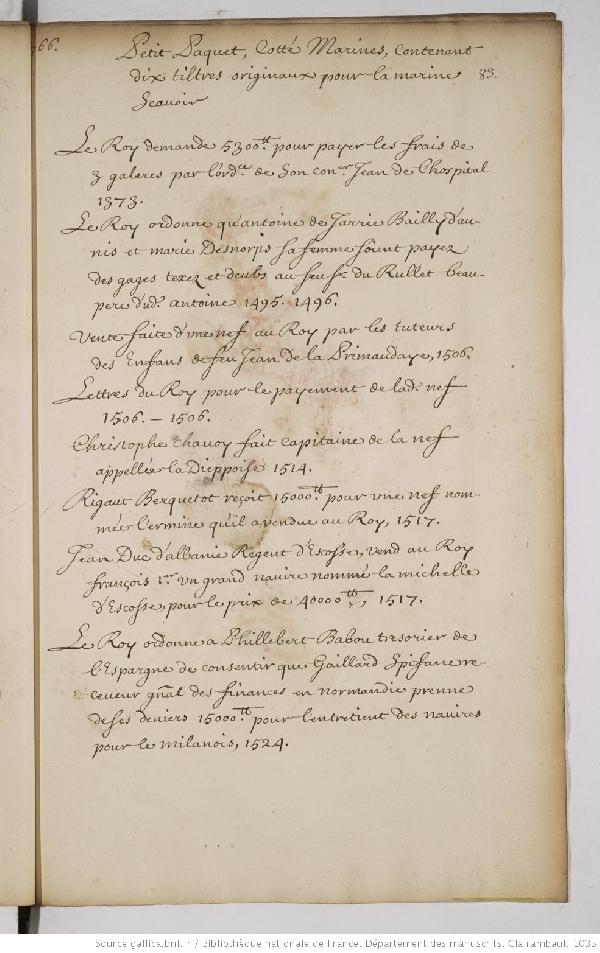 66.
Petit Paquet, Cotté Marines, contenant
dix tiltres originaux pour la marine 83.
Scavoir
Le Roy demande 5300tt pour payer les frais de
3 galeres par l'ordce de son coner Jean de Lhospital
1373.
Le Roy ordonne qu'antoine de Jarrie Bailly d'au-
nis et marie Desnorps sa femme soient payez
des gages texez et deubs au feu sr. du Rullet beau-
pere dud. antoine 1495. 1496.
Vente faite d'une nef au Roy par les tuteurs
des Enfans de feu Jean de la Primaudaye, 1506.
Lettres du Roy pour le payement de lade nef
1506. – 1506.
Christophe Chavoy fait Capitaine de la nef
appellée la Dieppoise 1514.
Rigaut Berquetot reçoit 15000tt pour vne nef nom-
mée l'ermine qu'il a vendue au Roy, 1517.
Jean Duc d'albanie Regent d'Escosse, vend au Roy
françois 1er vn grand navire nommé la michelle
d'Escosse pour le prix de 40000tt, 1517.
Le Roy ordonne a Phillebert Babou tresorier de
l'Espargne de consentir que Gaillard Spifane re-
ceveur gnal des finances en normandie prenne
de ses deniers 15000tt pour l'entretient des navires
pour le milanois, 1524.
Source gallica.bnf.fr / Bibliothèque nationale de France. Département des manuscrits. Clairambault 1035